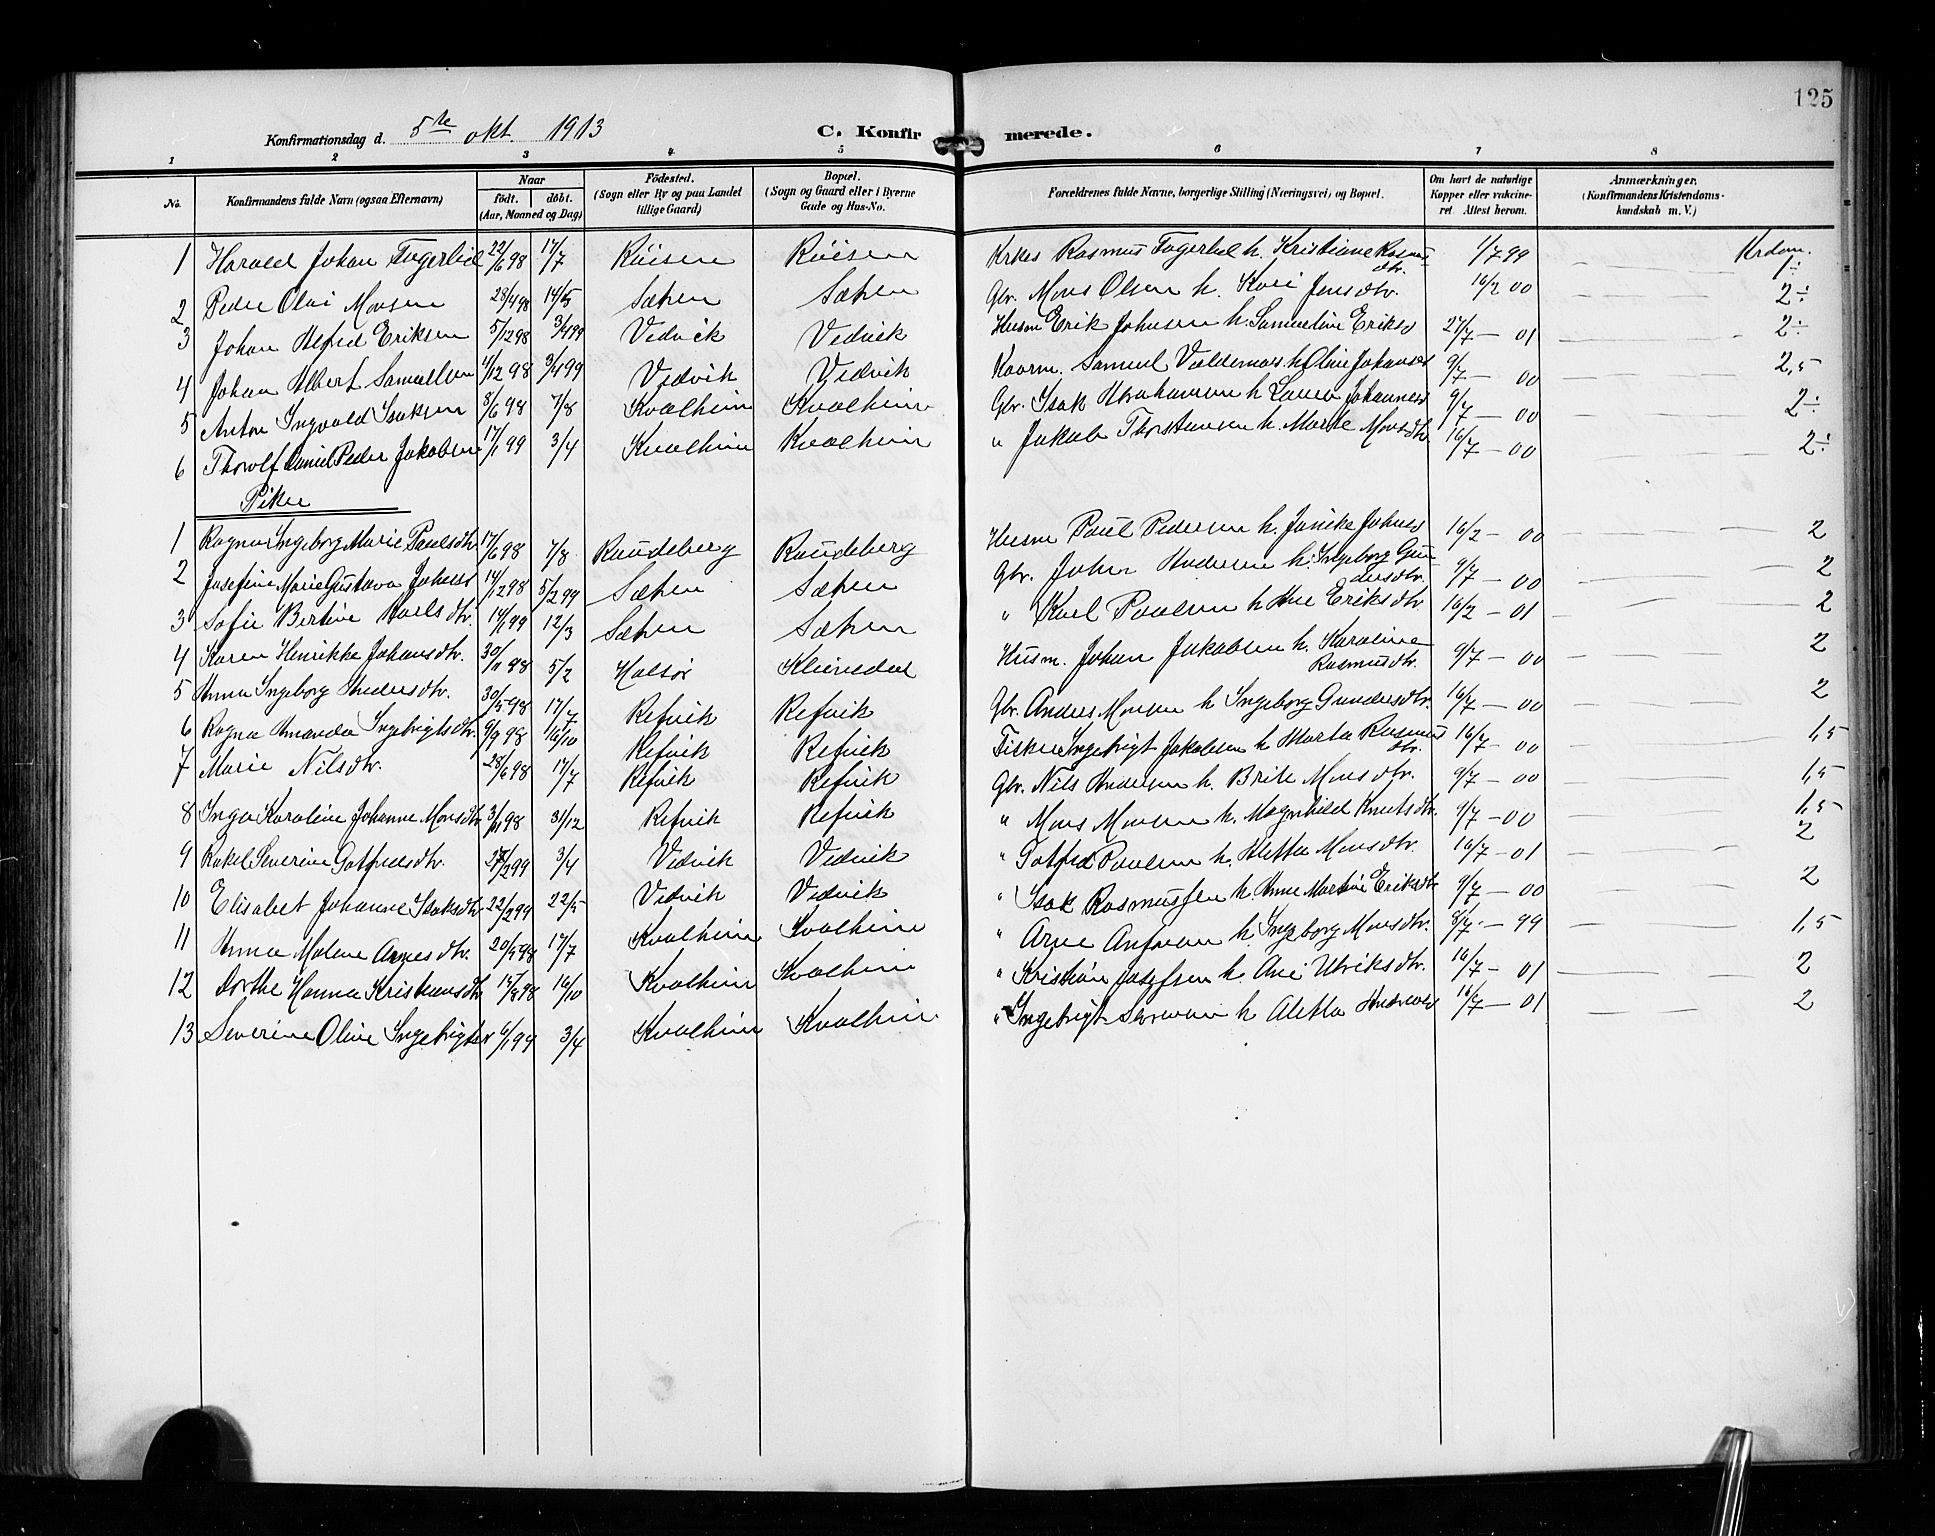 125
Konfirmationsdag d. 5te okt. 1913 C. Konfirmerede.
1 2 3 4 5 6 7 8
No. Konfirmandens fulde Navn (ogsaa Efternavn) Naar født. døbt. (Aar, Maaned og Dag) Fødested. (Sogn eller By og paa Landet tillige Gaard) Bopæl. (Sogn og Gaard eller i Byerne Gade og Hus-No. Forældrenes fulde Navne, borgerlige Stilling (Næringsvei) og Bopæl. Om havt de naturlige Kopper eller vakcineret. Attest herom. Anmærkninger. (Konfirmandens Kristendomskundskab m. V.)
Krdom.
1 Harald Johan Fagerlid 22/6 98 17/7 Röisen Röisen Krkes Rasmus Fagerlid h. Kristiane Rasmusdtr. 1/7 99 1÷
2 Peder Olai Monsen 28/4 98 14/5 Sætren Sætren Gbr. Mons Olsen h. Kari Jensdtr. 16/2 00 2÷
3 Johan Alfred Eriksen 5/12 98 3/4 99 Vedvik Vedvik Husm Erik Johnsen h. Samueline Eriksd 27/7 - 01 2÷
4 Johan Albert Samuelsen 4/12 98 3/4 99 Vedvik Vedvik Kaarm. Samuel Valdemars. h. Oline Johansd 9/7 - 00 2,5
5 Anton Ingvald Isaksen 8/6 98 7/8 Kvalheim Kvalheim Gbr. Isak Abrahamsen h Laura Johannesd 9/7 - 00 2÷
6 Thorolf Daniel Peder Jakobsen 17/1 99 3/4 Kvalheim Kvalheim " Jakob Thorstensen h. Marte Monsdtr 16/7 - 00 2÷
Piker
1 Ragna Ingeborg Marie Paulsdtr 17/6 98 7/8 Raudeberg Raudeberg Husm Paul Pedersen h. Janike Johnsd 16/2 - 00 2
2 Josefine Marie Gustava Johnsd 14/12 98 5/2 99 Sætren Sætren Gbr. John Andersen h. Ingeborg Gundersdtr. 9/7 - 00 2
3 Sofie Bertine Karlsdtr. 14/1 99 12/3 Sætren Sætren " Karl Paulsen h Ane Eriksdtr 16/2 - 01 2
4 Karen Henrikke Johansdtr. 30/11 98 5/2 Halsör Kleivedal Husm. Johan Jakobsen h. Karoline Rasmusdtr. 9/7 - 00 2
5 Anna Ingeborg Andersdtr. 30/5 98 17/7 Refvik Refvik Gbr. Anders Monsen h Ingeborg Gundersdtr. 16/7 - 00 2
6 Ragna Amanda Ingebrigtsdtr. 9/9 98 16/10 Refvik Refvik Fisker Ingebrigt Jakobsen h Marta Rasmusdtr. 16/7 - 00 1,5
7 Marie Nilsdtr. 28/6 98 17/7 Refvik Refvik Gbr. Nils Andersen h. Brite Monsdtr. 9/7 - 00 1,5
8 Inga Karoline Johanne Monsdtr 3/11 98 31/12 Refvik Refvik " Mons Monsen h. Magnhild Knutsdtr. 9/7 - 00 1,5
9 Rakel Severine Gotfredsdtr. 27/2 99 3/4 Vedvik Vedvik " Gotfred Paulsen h. Aletta Monsdtr. 16/7 - 01 2
10 Elisabet Johanne Isaksdtr 22/2 99 22/5 Vedvik Vedvik " Isak Rasmussen h. Anne Martine Eriksdtr 9/7 - 00 2
11 Anna Malene Arnesdtr. 20/5 98 17/7 Kvalheim Kvalheim " Arne h. Ingeborg Monsdtr. 8/7 - 99 1,5
12 Dorthe Hanna Kristiansdtr 17/8 98 16/10 Kvalheim Kvalheim " Kristian Josefsen h. Ane Ulriksdtr. 16/7 - 01 2
13 Severine Oline Ingebrigtsd 6/1 99 3/4 Kvalheim Kvalheim " Ingebrigt h Aletta Andreasd 16/7 - 01 2